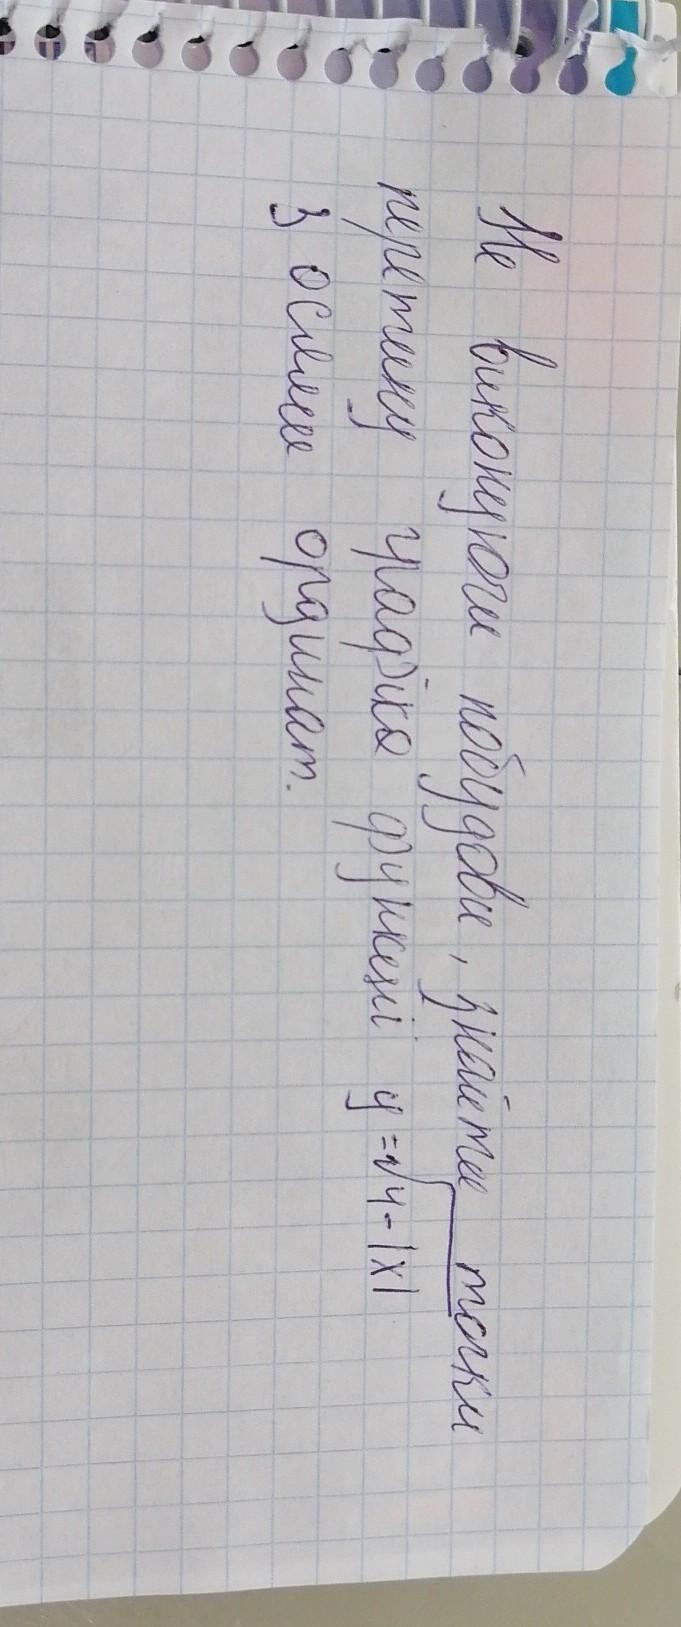 Не виконуючи побудови, знайти точки
перетину графіка функції y = √4-|x|
з осями ординат.